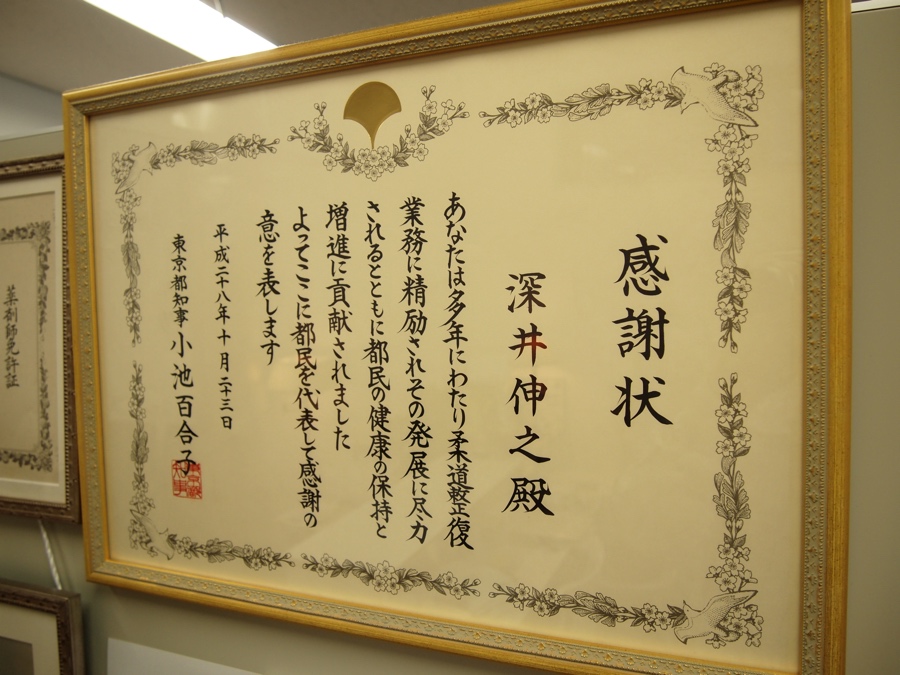 感謝状
深井伸之殿
あなたは多年にわたり柔道整復
業務に精励されその発展に尽力
されるとともに都民の健康の保持と
増進に貢献されました
よってここに都民を代表して感謝の
意を表します
平成二十八年十月二十三日
東京都知事小池百合子
薬剤師免許証